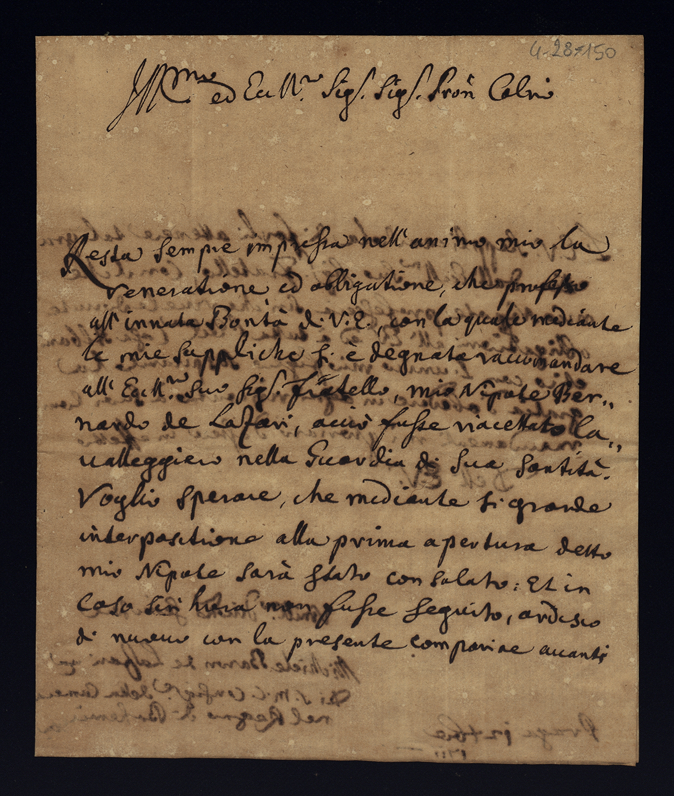 4-28*150
Ill.mo ed Ecc.mo Sig.r Sig.r Pron Colmo
Resta sempre impressa nell'animo mio la
veneratione ed obligatione, che professo
all'innata Bontà di V.E., con la quale mediante
le mie suppliche si è degnata raccomandare
all'Ecc.mo Suo Sig.r fratello, mio Nipote Ber„
nardo de Lassari, acciò fusse riacettato Ca„
valleggiero nella Guardia di Sua Santità.
Voglio sperare, che mediante si grande
interpositione alla prima apertura detto
mio Nipote sarà stato consolato: Et in
caso sin hora non fusse seguito, ardisco
di nuovo con la presente comparire avanti